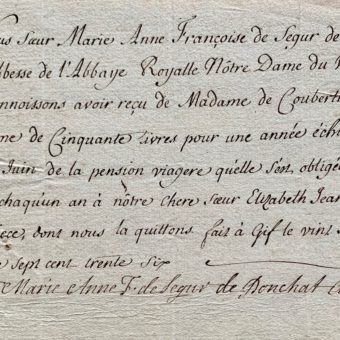 us sœur Marie Anne Françoise de Segur de
bbesse de l'Abbaye Royalle Nôtre Dame du
onnoissons avoir reçu de Madame de Couberti
me de Cinquante livres pour une année échi
Juin de la pension viagere qu'elle s'est obligée
chaqu'un an à nôtre chere sœur Elizabeth Jean
iece, dont nous la quittons fait à Gif le vint s
e sept cent trente six
Marie Anne F. de Segur de Ponchat